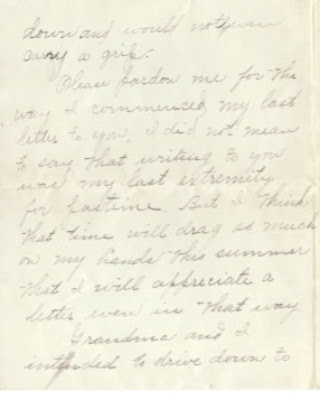 down and would not even
carry a grip.
Please pardon me for the
way I commenced my last
letter to you. I did not mean
to say that writing to you
was my last extremity
for pastime. But I think
that time will drag so much
on my hands this summer
that I will appreciate a
letter even in that way.
Grandma and I
intended to drive down to